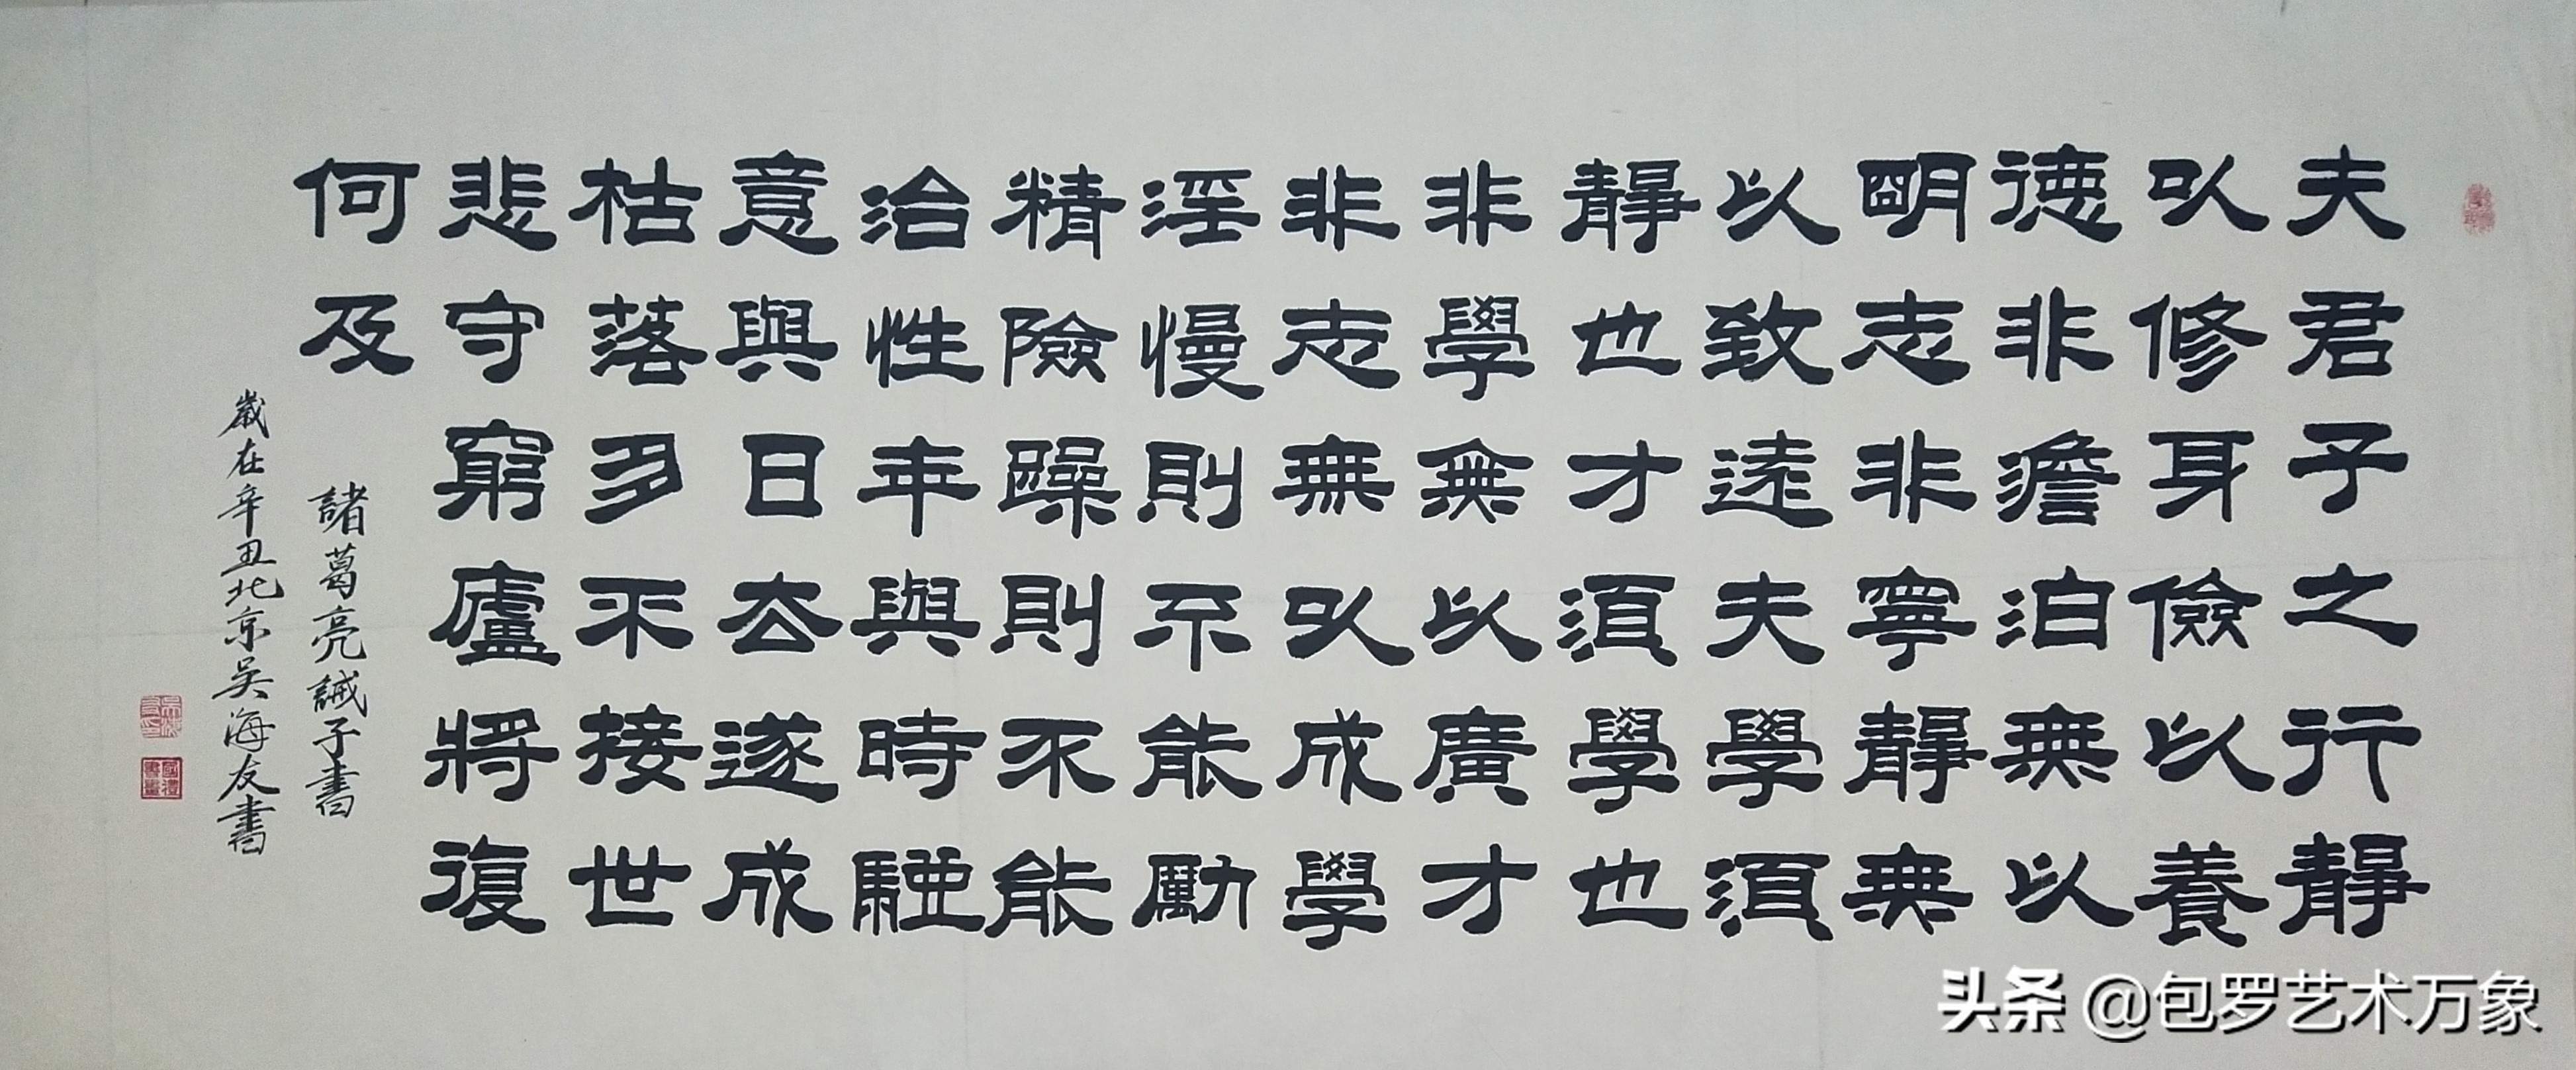 夫君子之行靜
以修身儉以養
德非澹泊無以
明志非寧靜無
以致遠夫學須
靜也才須學也
非學無以廣才
非志無以成學
淫慢則不能勵
精險躁則不能
治性年與時馳
意與日去遂成
枯落多不接世
悲守窮廬將復
何及
諸葛亮誡子書
歲在辛丑北京吳海友書
头条 @包罗艺术万象